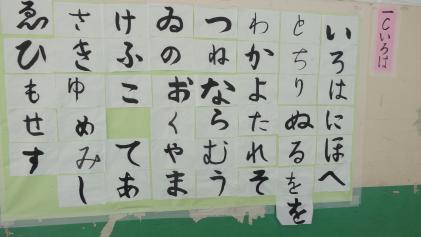 一Cいろは
いろはにほへ
とちりぬるをを
わかよたれそ
つねならむう
ゐのおくやま
けふこてあ
さきゆめみし
ゑひもせす